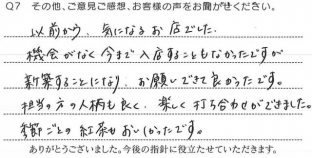 Q7 その他、ご意見ご感想、お客様の声をお聞かせください。
以前から、気になるお店でした。
機会がなく今まで入店することもなかったですが
新築することになり、お願いできて良かったです。
担当の方の人柄も良く、楽しく打ち合わせができました。
季節ごとの紅茶もおいしかったです。
ありがとうございました。今後の指針に役立たせていただきます。